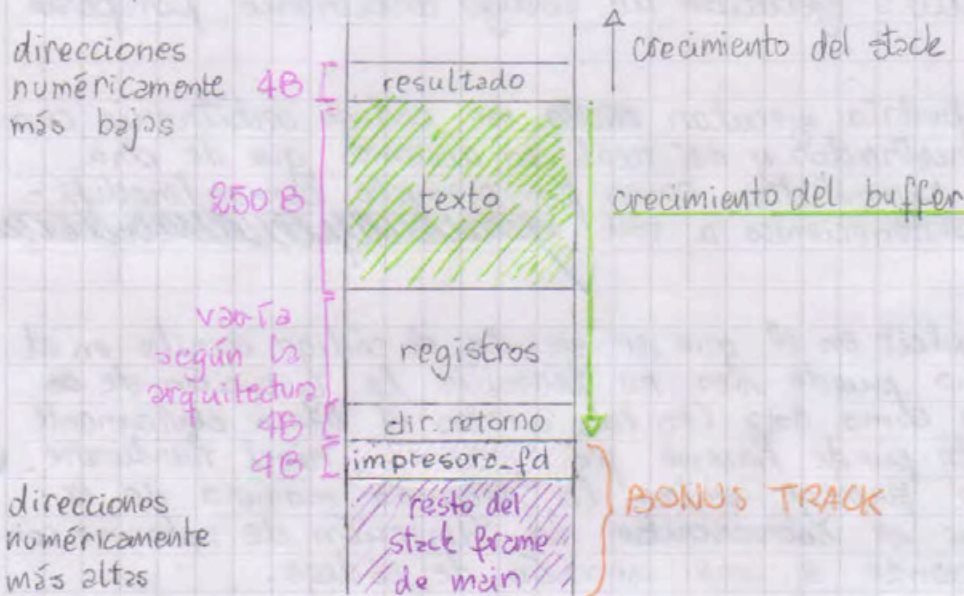 direcciones
numéricamente
más bajas
4B
resultado
crecimiento del stack
250 B
texto
crecimiento del buffer
varía
según la
arquitectura
registros
4B
dir. retorno
4B
impresora_fd
direcciones
numéricamente
más altas
resto del
stack frame
de main
BONUS TRACK